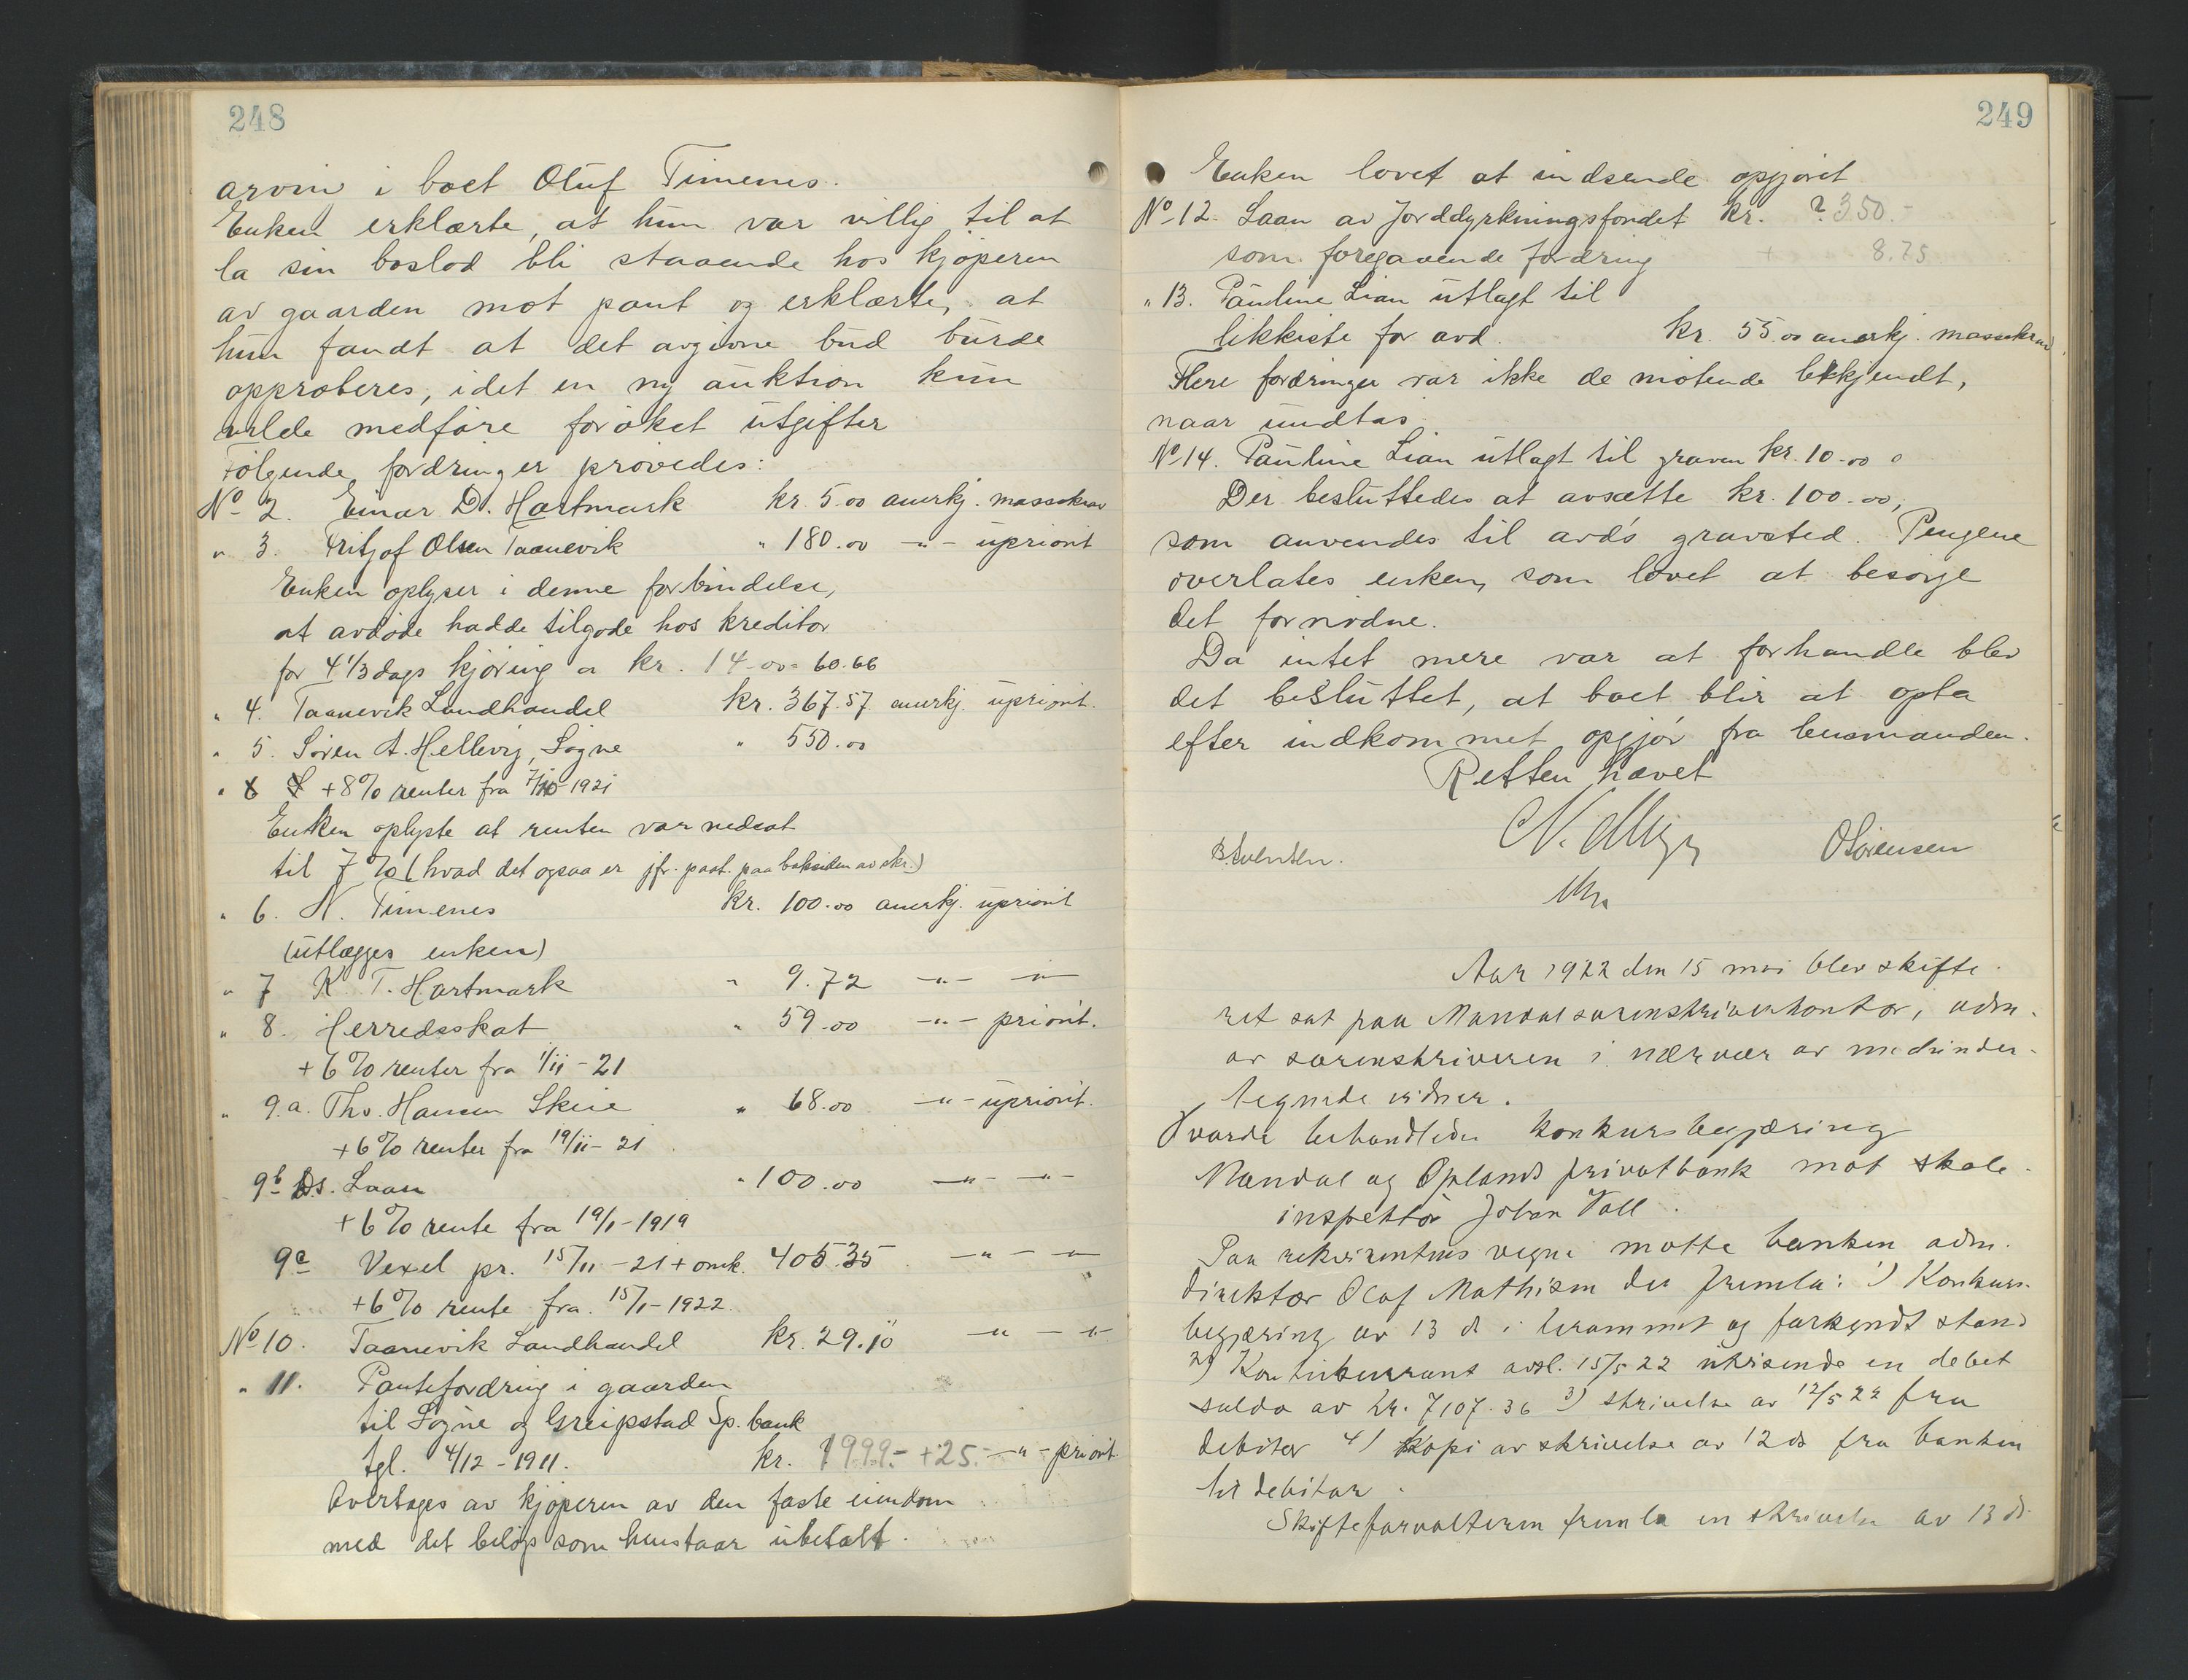 248
arving i boet Oluf Timenes.
Enken erklærte, at hun var villig til at
la sin boslod bli staaende hos kjøperen
av gaarden mot pant og erklærte, at
hun fandt at det avgivne bud burde
approberes, idet en ny auktion kun
vilde medføre forøket utgifter
Følgende fordringer prøvedes:
No 2. Einar D. Hartmark kr 5.00 anerkj. massekrav
" 3. Fritjof Olsen Taanevik " 180.00 -"- upriorit
Enken oplyser i denne forbindelse,
at avdøde hadde tilgode hos kreditor
for 4 1/3 dags kjøring a kr. 14-00 = 60.66
" 4. Taanevik Landhandel kr. 367.57 anerkj. upriorit.
" 5. Søren A. Hellevig, Søgne " 550.00
" 6 +8% renter fra 7/10-1921
Enken oplyste at renten var nedsat
til 7% (hvad det ogsaa er jfr. paat. paa baksiden av skr.)
" 6. N. Timenes kr. 100.00 anerkj. upriorit
(utlægges enken)
" 7 K. T. Hartmark " 9.72 -"- -"-
" 8. Herredsskat " 59.00 -"- priorit.
+6% renter fra 1/11-21
" 9.a. Thv. Hansen Skeie " 68.00 -"- upriorit.
+6% renter fra 19/11-21
9b Ds. Laan " 100.00 -"- -"-
+6% rente fra 19/1-1919
9c Vexel pr. 15/11-21 + omk. 405.35 -"- -"-
+6% rente fra 15/1-1922.
No 10. Taanevik Landhandel kr. 29.10 -"- -"-
" 11. Pantefordring i gaarden
til Søgne og Greipstad Sp. bank
tgl. 4/12-1911. kr. 1999.- +25.- -"- priorit
Overtages av kjøperen av den faste eiendom
med det beløp som henstaar ubetalt.
249
Enken lovet at indsende opgjøret
No 12. Laan av Jorddyrkningsfondet kr. ? 350.-
som foregaaende fordring + 8.75
" 13. Pauline Lian utlagt til
likkiste for avd. kr. 55.00 anerkj. massekrav
Flere fordringer var ikke de møtende bekkjendt,
naar undtas
No 14. Pauline Lian utlagt til graven kr. 10-00
Der besluttedes at avsætte kr. 100-00,
som anvendes til avd's gravsted. Pengene
overlates enken, som lovet at besørge
det fornødne.
Da intet mere var at forhandle blev
det besluttet, at boet blir at opta
efter indkommet opgjør fra lensmanden.
Retten hævet
OSørensen
Aar 1922 den 15 mai blev skifte-
ret sat paa Mandal sorenskriverkontor, adm.
av sorenskriveren i nærvær av medunder-
tegnede vidner.
Hvorda behandledes konkursbegjæring
Mandal og Oplands privatbank mot skole-
inspektør Johan Voll.
Paa rekvirentens vegne møtte banken adm.
direktør Olaf Mathisen der fremla: 1) Konkurs-
begjæring av 13 ds i berammet og forkyndt stand
2) Kontokurrant avsl. 15/5 22 utvisende en debet
saldo av kr. 7107.36 3) skrivelse av 12/5 22 fra
debitor 4) kopi av skrivelse av 12 ds fra banken
til debitor.
Skifteforvalteren fremla en skrivelse av 13 ds.